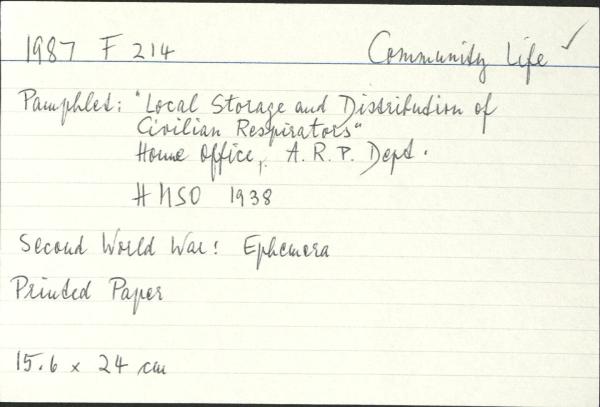 1987 F 214 Community Life ✓
Pamphlet: "Local Storage and Distribution of
Civilian Respirators"
Home Office, A.R.P. Dept.
HMSO 1938
Second World War: Ephemera
Printed Paper
15.6 x 24 cm